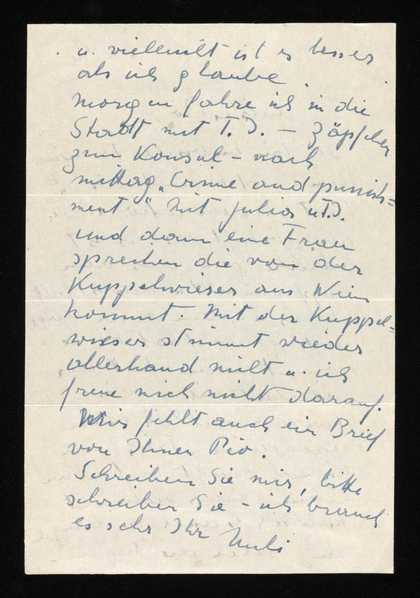 u. vielleicht ist es besser
als ich glaube.
Morgen fahre ich in die
Stadt mit T. J. –
zum Konsul – nach
mittag „Crime and punish=
ment“ mit Julius u T.J.
und dann eine Frau
sprechen die von der
Kuppelwieser aus Wien
kommt. Mit der Kuppel=
wieser stimmt wieder
allerhand nicht u. ich
freue mich nicht darauf.
Mir fehlt auch ein Brief
von Ihnen Pio.
Schreiben Sie mir, bitte
schreiben Sie – ich brauch
es sehr Ihr